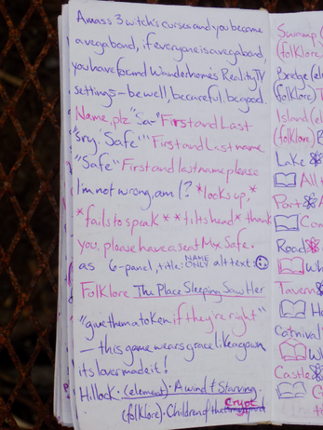 Amass 3 witch's curses and you become
a vegabond, if everyone is a vegabond,
you have found Wanderhome's Reality TV
setting — be well, be careful. be good.
Name, plz "Sa-" First and Last
"sry. Safe." First and Last name
"Safe" First and last name please
I'm not wrong am I? *looks up,*
*fails to speak* *tilts head* thank
you, please have a seat Mx Safe.
as 6-panel, title: NAME ONLY alt text:
Folklore The Place Sleeping Saw Her
"give them a token if they're right"
— this game wears grace like a gown
its lover made it!
Hillock · (element) · A wind + Starving.
(folklore) · Children of the Crypt
Swamp
(folklore
Bridge (el
(folklore) T
Island (el
(folklore) B
Lake
All
Port A
Con
Road
Wh
Tavern
Ho
Carnival
W
Castle